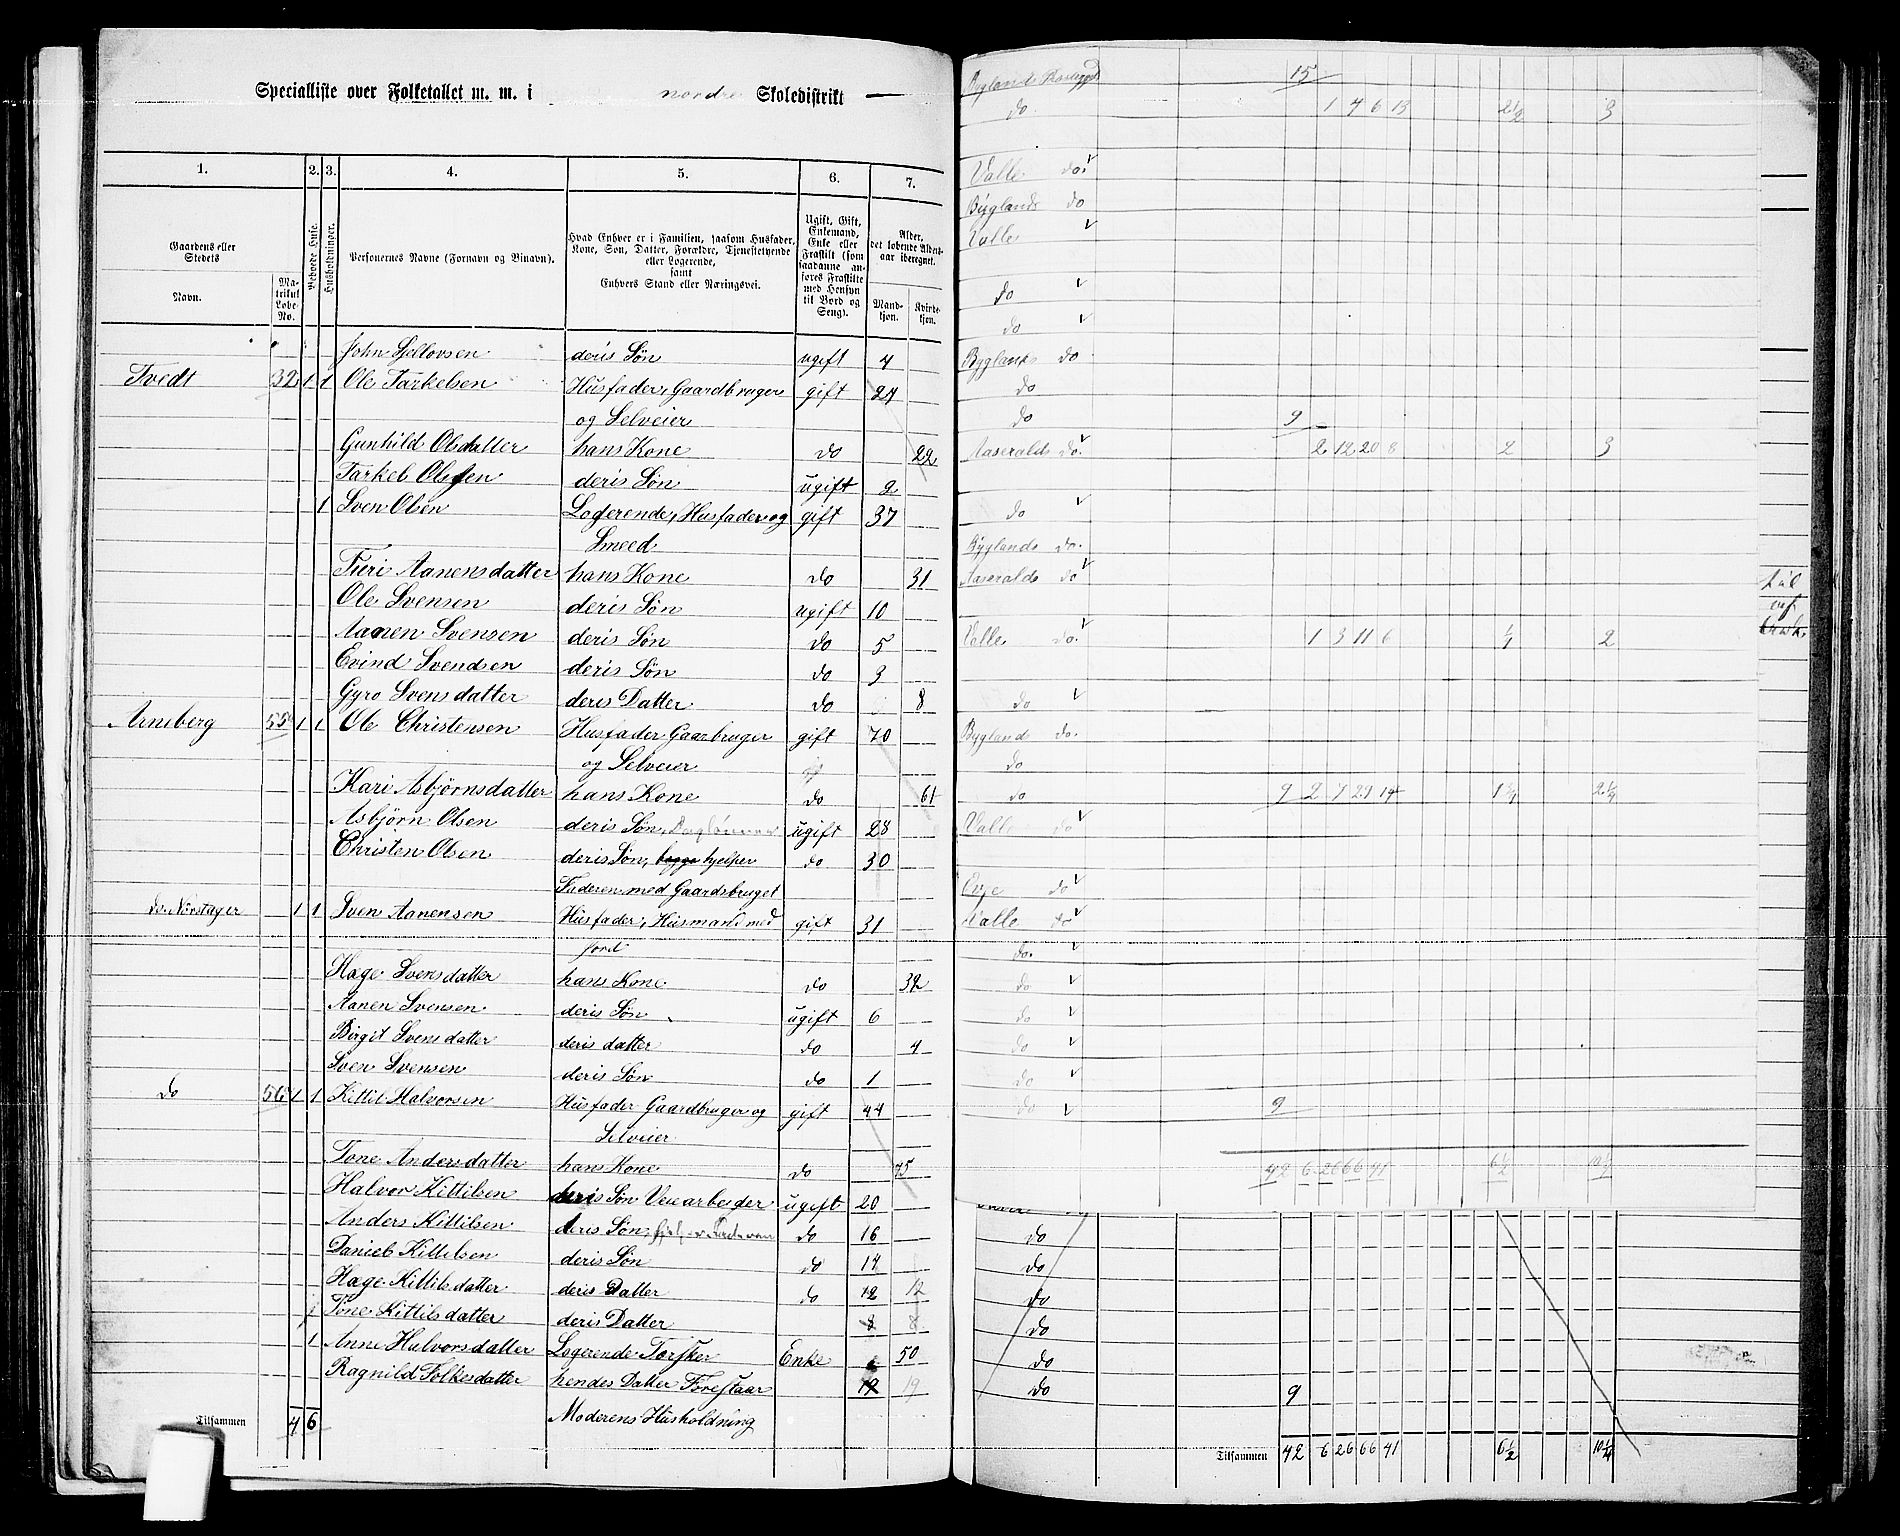 Specialliste over Folketallet m. m. i nordre Skoledistrikt
1. 2. 3. 4. 5. 6. 7.
Gaardens eller Stedets
Navn.
Matrikul Løbe-No.
Beboede Huse.
Husholdninger.
Personernes Navne (Fornavn og Vinavn).
Hvad Enhver er i Familien, saasom Husfader,
Kone, Søn, Datter, Forældre, Tjenestetyende
eller Logerende,
samt
Enhvers Stand eller Næringsvei.
Ugift, Gift,
Enkemand,
Enke eller
Fraskilt (som
saadanne an-
føres Fraskilte
med Hensyn
til Bord og
Seng).
Alder,
det løbende Alders-
aar iberegnet.
Mand-
kjøn.
Kvinde-
kjøn.
John Sjellovsen deris Søn ugift 4
Tvedt 32 1 1 Ole Tarkelsen Husfader, Gaardbruger gift 24
og Selveier
Gunhild Olsdatter hans Kone do 22
Tarkel Olssen deris Søn ugift 2
1 Sven Olsen Logerende, Husfader og gift 37
Smeed
Turi Aanensdatter hans Kone do 31
Ole Svensen deris Søn ugift 10
Aanen Svensen deris Søn do 5
Evind Svendsen deris Søn do 3
Gyro Svensdatter deris Datter do 8
Arneberg 55 1 1 Ole Christensen Husfader Gaarbruger gift 70
og Selveier
Kari Asbjørnsdatter hans Kone do 61
Asbjørn Olsen deris Søn, ugift 28
Christen Olsen deris Søn, begge hjelper do 30
Faderen med Gaardsbruget
do. Norstager 1 1 Sven Aanensen Husfader, Husmand med gift 31
jord
Hage Svensdatter hans Kone do 32
Aanen Svensen deris Søn ugift 6
Birgit Svensdatter deris datter do 4
Sven Svensen deris Søn do 1
do 56 1 1 Kittil Halvorsen Husfader Gaardbruger og gift 44
Selveier
Tone Andersdatter hans Kone do 45
Halvor Kittilsen deris Søn Veiearbeider ugift 20
Anders Kittilsen deris Søn, do 16
Daniel Kittilsen deris Søn do 14
Hage Kittilsdatter deris Datter do 12 12
Tone Kittilsdatter deris Datter 8 8
1 Anne Halvorsdatter Logerende Enke 50
Ragnild Folkesdatter hendes Datter Forestaar 19 19
Moderens Husholdning
Tilsammen 4 6
Byglands Præstegjeld 15
do 1 4 6 13 2½ 3
Valle do.
Byglands do
Valle
do
do
Byglands do
do
do 9
Aaseralds do. 2 12 20 8 2 3
do
Byglands do.
Aaseralds do
Valle do. 1 3 11 6 2
do
Bygland do.
do
do 9 2 29 14
Valle do
Evje do
Valle do
do.
do
do
do
do
do 9
42 6 26 66 41 6½
do
do
do
do
do
do 9
Tilsammen 42 6 26 66 41 6½ 10¼